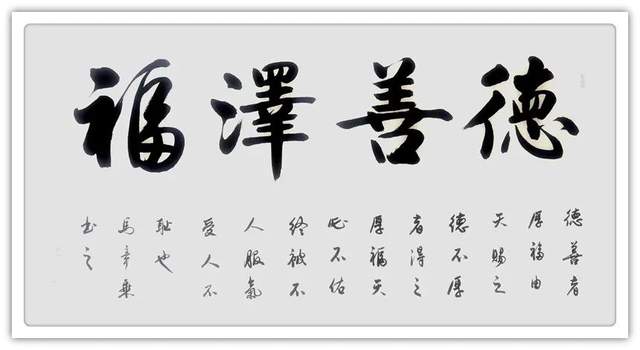 德善澤福
德善者
厚福由
天賜之
德不厚
者得之
厚福天
不佑
終被不
人服氣
受人不
恥也
馬
書之